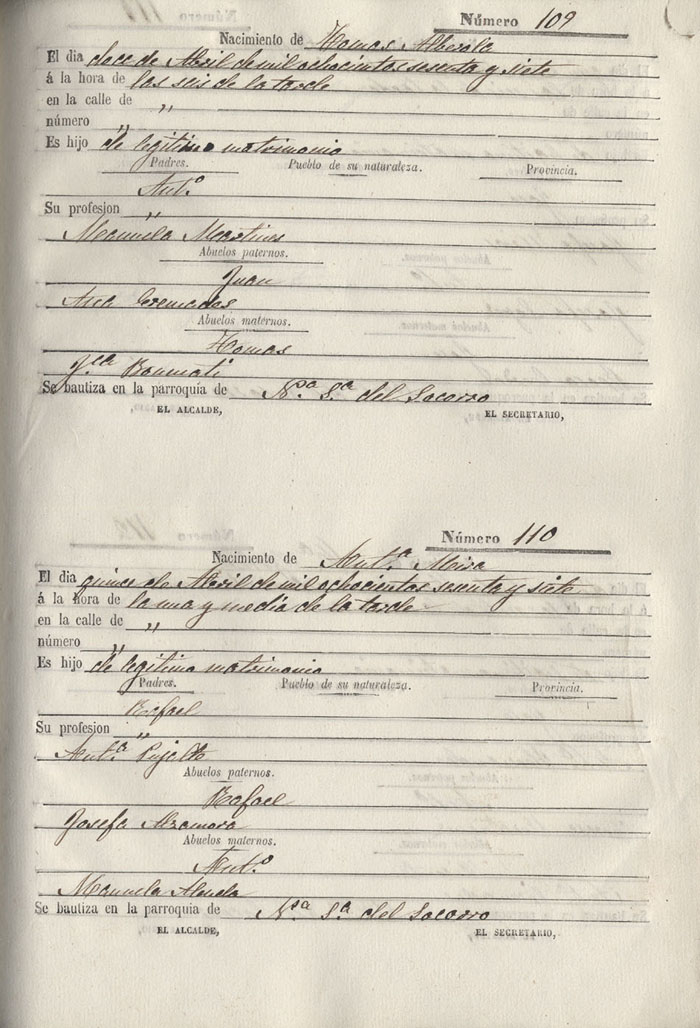 Número 109
Nacimiento de Tomas Alberola
El dia doce de Abril de mil ochocientos sesenta y siete
á la hora de las seis de la tarde
en la calle de "
número "
Es hijo de legitimo matrimonio
Padres. Pueblo de su naturaleza. Provincia.
Ant.º
Su profesion "
Manuela Martines
Abuelos paternos.
Juan
Ana Cremades
Abuelos maternos.
Tomas
J.ca Bonmati
Se bautiza en la parroquia de N.ª S.ª del Socorro
EL ALCALDE, EL SECRETARIO,
Número 110
Nacimiento de Ant.ª Mira
El dia quince de Abril de mil ochocientos sesenta y siete
á la hora de la una y media de la tarde
en la calle de "
número "
Es hijo de legitimo matrimonio
Padres. Pueblo de su naturaleza. Provincia.
Rafael
Su profesion "
Ant.ª Pujalte
Abuelos paternos.
Rafael
Josefa Alzamora
Abuelos maternos.
Ant.º
Manuela
Se bautiza en la parroquia de N.ª S.ª del Socorro
EL ALCALDE, EL SECRETARIO,